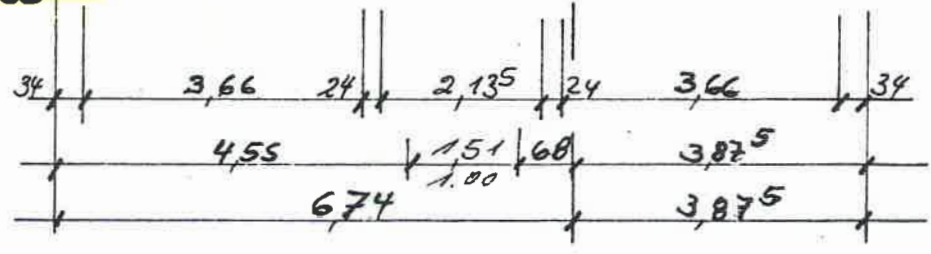 34 3,66 24 2,13⁵ 24 3,66 34
4,55 1,51 68 3,87⁵
1.00
6,74 3,87⁵